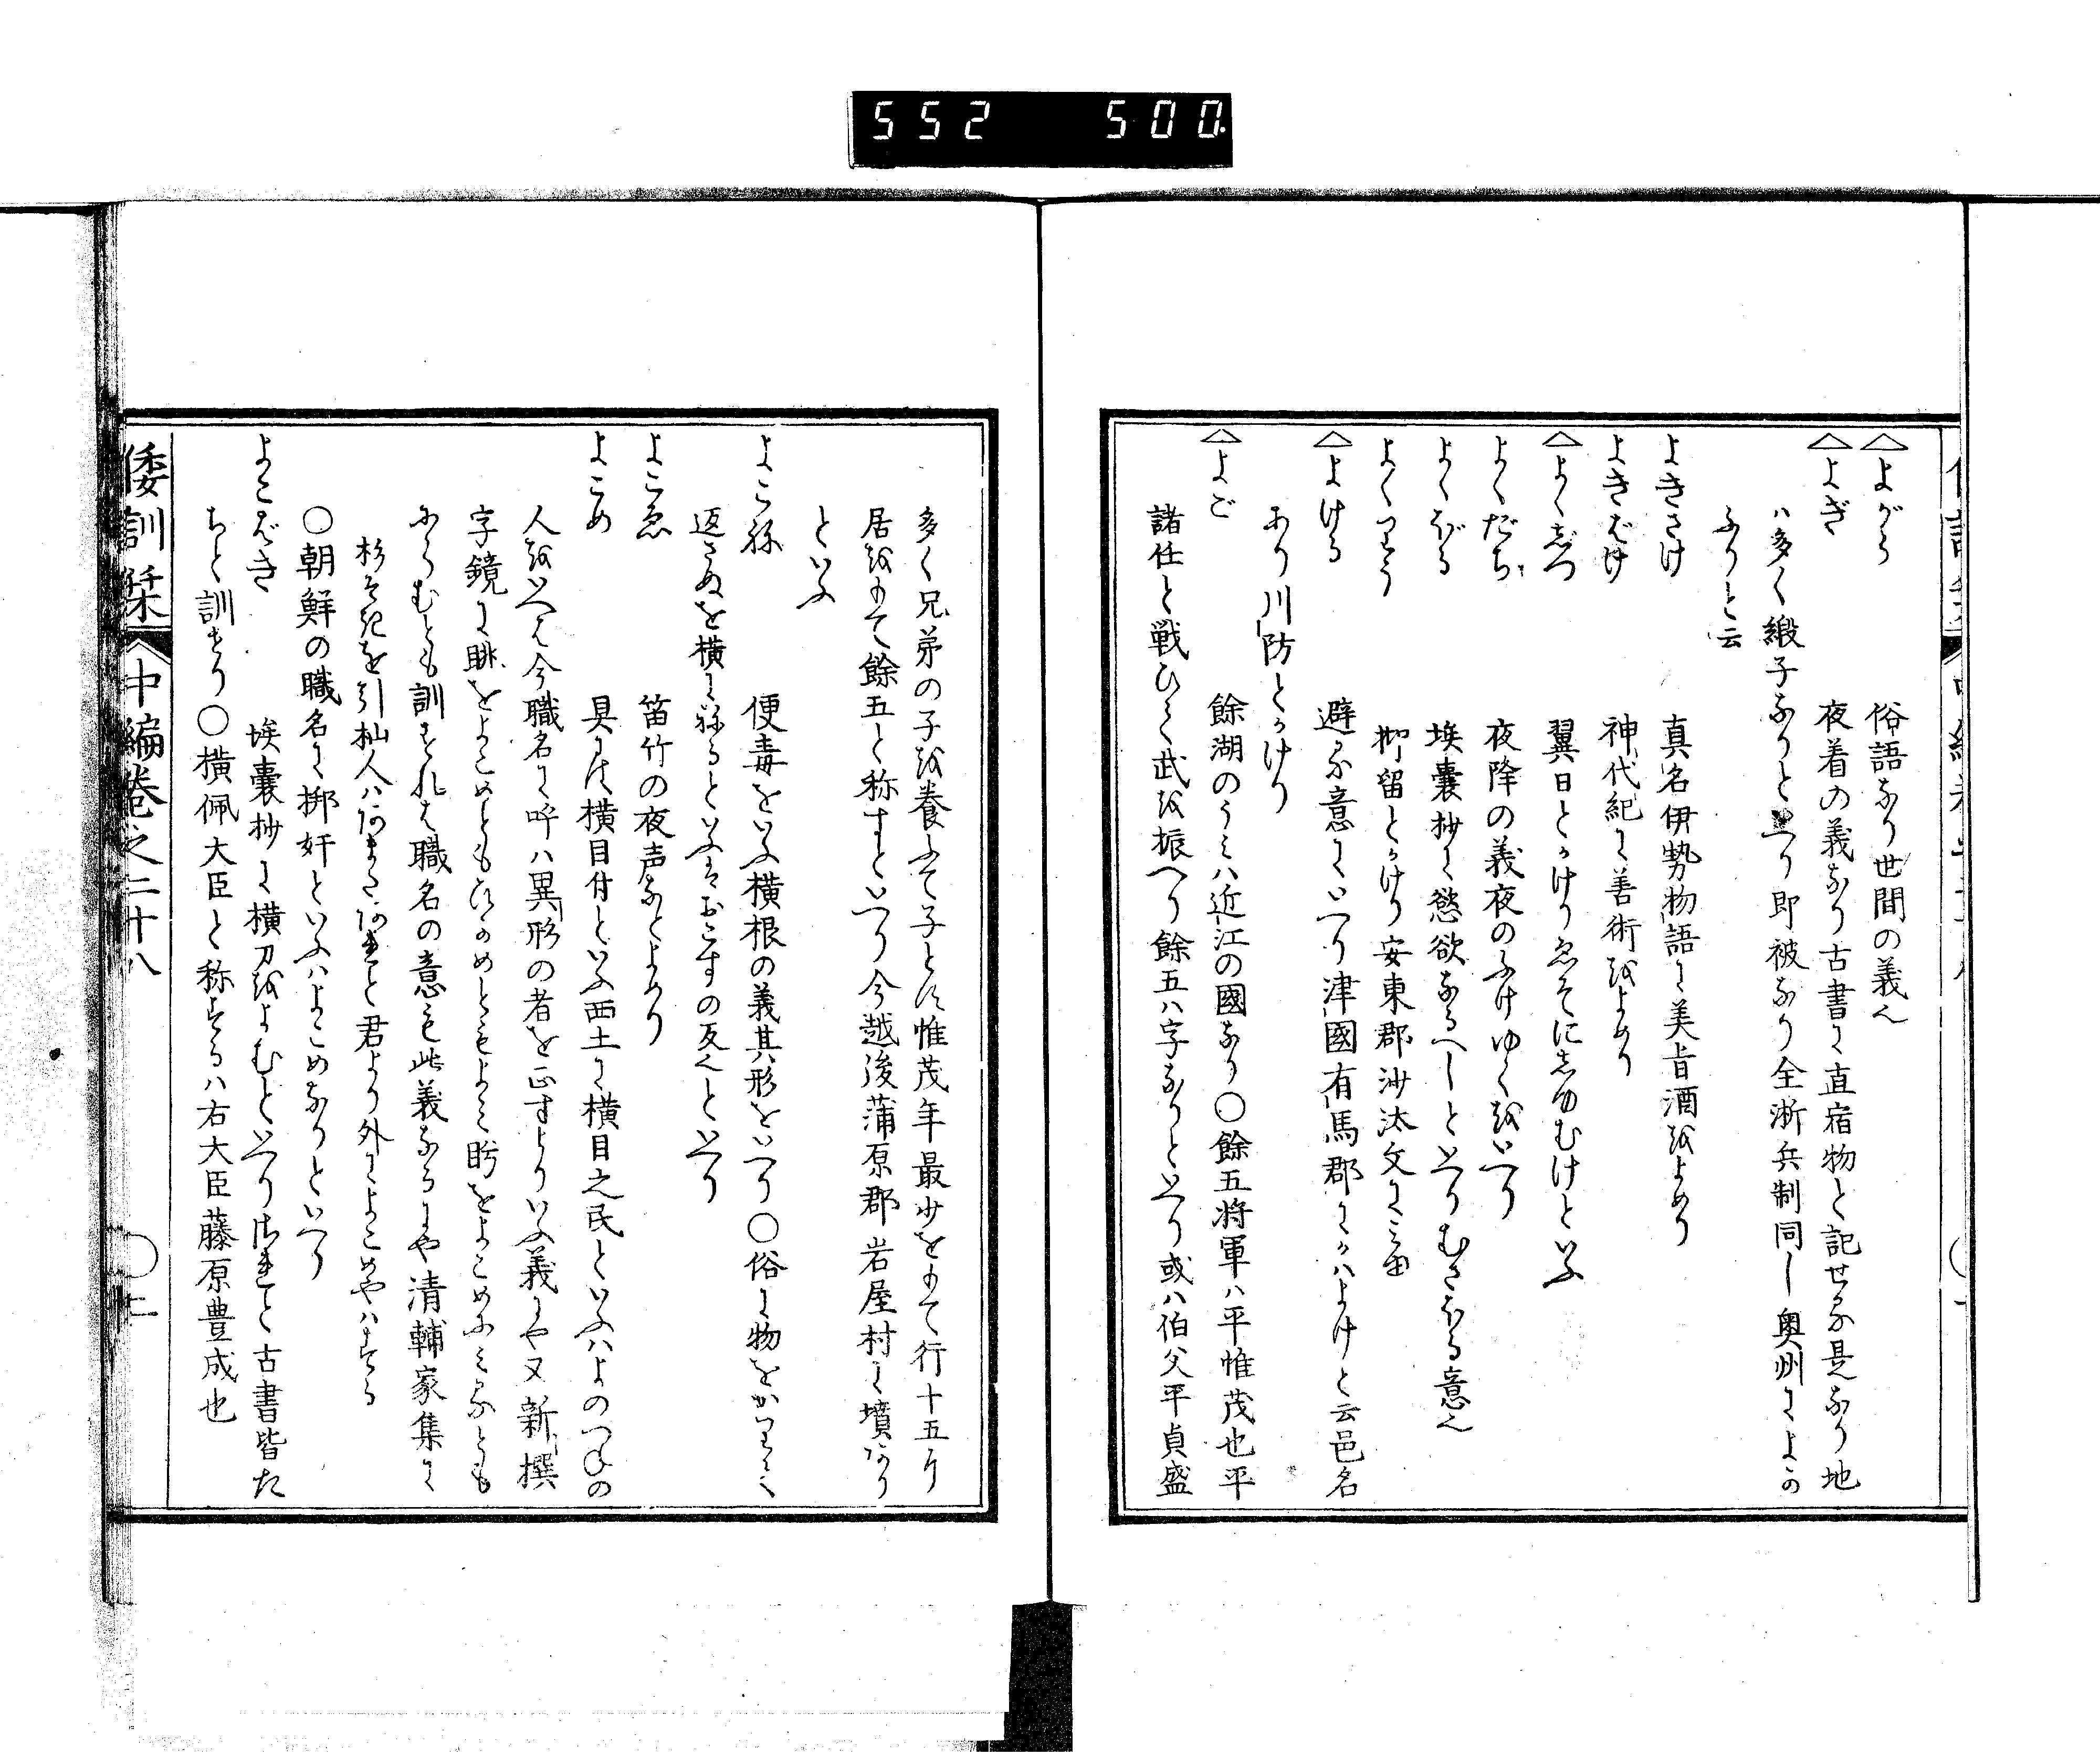 552 500.
△よがら 俗語なり世間の義也
△よぎ 夜着の義なり古書に直宿物と記せる是なり地
ハ多く緞子なりといへり即被なり全浙兵制同し奥州によか
ふりと云
よきさけ 真名伊勢物語に美旨酒をよめり
よきばけ 神代紀に善術をよめり
△よくじつ 翼日とかけりゑそにしゆむけといふ
よくだち 夜降の義夜のふけゆくをいへり
よくぼる 埃嚢抄に慾欲なるへしといへりむさぼる意也
よくりう 抑留とかけり安東郡沙汰文に
△よける 避る意にいへり津國有馬郡にかハよけと云邑名
あり川防とかけり
△よご 餘湖のうミハ近江の國なり〇餘五将軍ハ平惟茂也平
諸任と戦ひて武を振へり餘五ハ字なりといへり或ハ伯父平貞盛
多く兄弟の子を養ふて子とす惟茂年最少をもて行十五に
居をもて餘五と称すといへり今越後蒲原郡岩屋村に墳あり
といふ
よこね 便毒をいふ横根の義其形をいへり〇俗に物をかりて
返さぬを横にねるといふはおこすの反也といへり
よこゑ 笛竹の夜声なとよめり
よこめ 具にハ横目付といふ西土に横目之民といふハよのつねの
人をいへは今職名に呼ハ異形の者を正すよりいふ義にや又新撰
字鏡に眺をよこめともひかめともよミ眄をよこめにミるとも
にらむとも訓すれは職名の意も此義なるにや清輔家集に
杉そ紀を引杣人ハあまたあれと君より外によこめやハする
〇朝鮮の職名に揶奸といふハよこめなりといへり
よこはき 埃嚢抄に横刀をよむといへりされと古書皆た
ちと訓せり〇横佩大臣と称するハ右大臣藤原豊成也
倭訓栞 中編巻之二十八